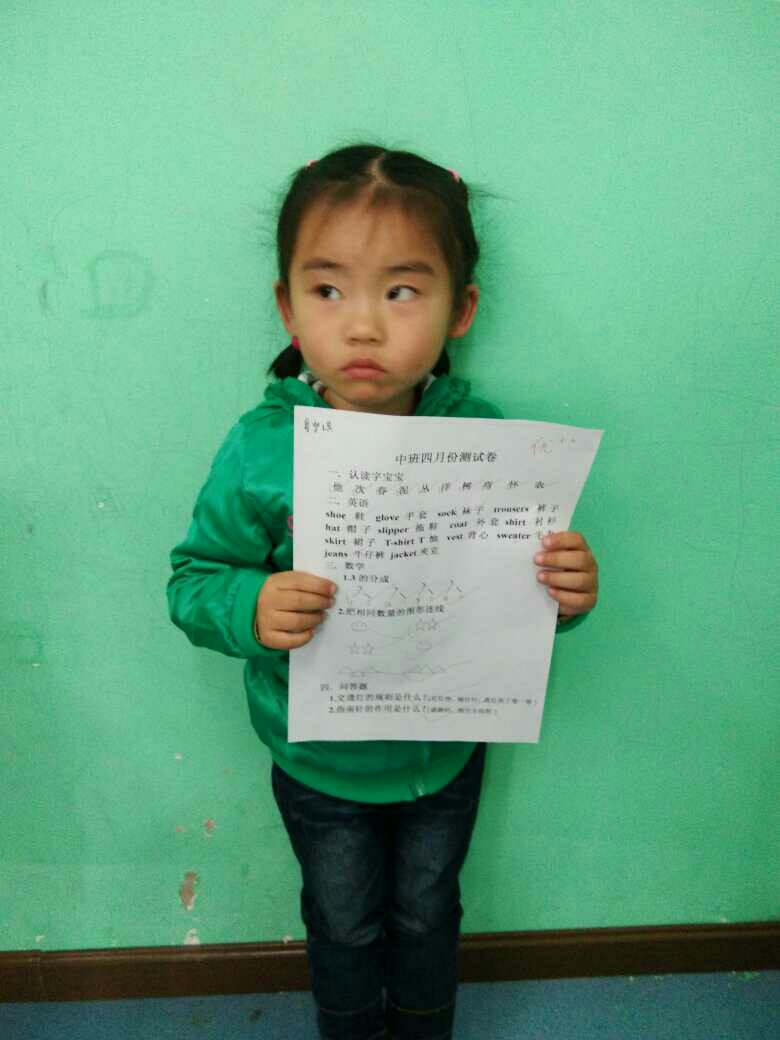 优++
中班四月份测试卷
一. 认读字宝宝
他 次 春 泥 丛 洋 树 座 怀 衣
二. 英语
shoe 鞋 glove 手套 sock 袜子 trousers 裤子
hat 帽子 slipper 拖鞋 coat 外套 shirt 衬衫
skirt 裙子 T-shirt T恤 vest 背心 sweater 毛
jeans 牛仔裤 jacket 夹克
三. 数学
1.3 的分成
2.把相同数量的图形连线
四. 问答题
1.交通灯的规则是什么?(红灯停、绿灯行、黄灯亮了等一等)
2.指南针的作用是什么?